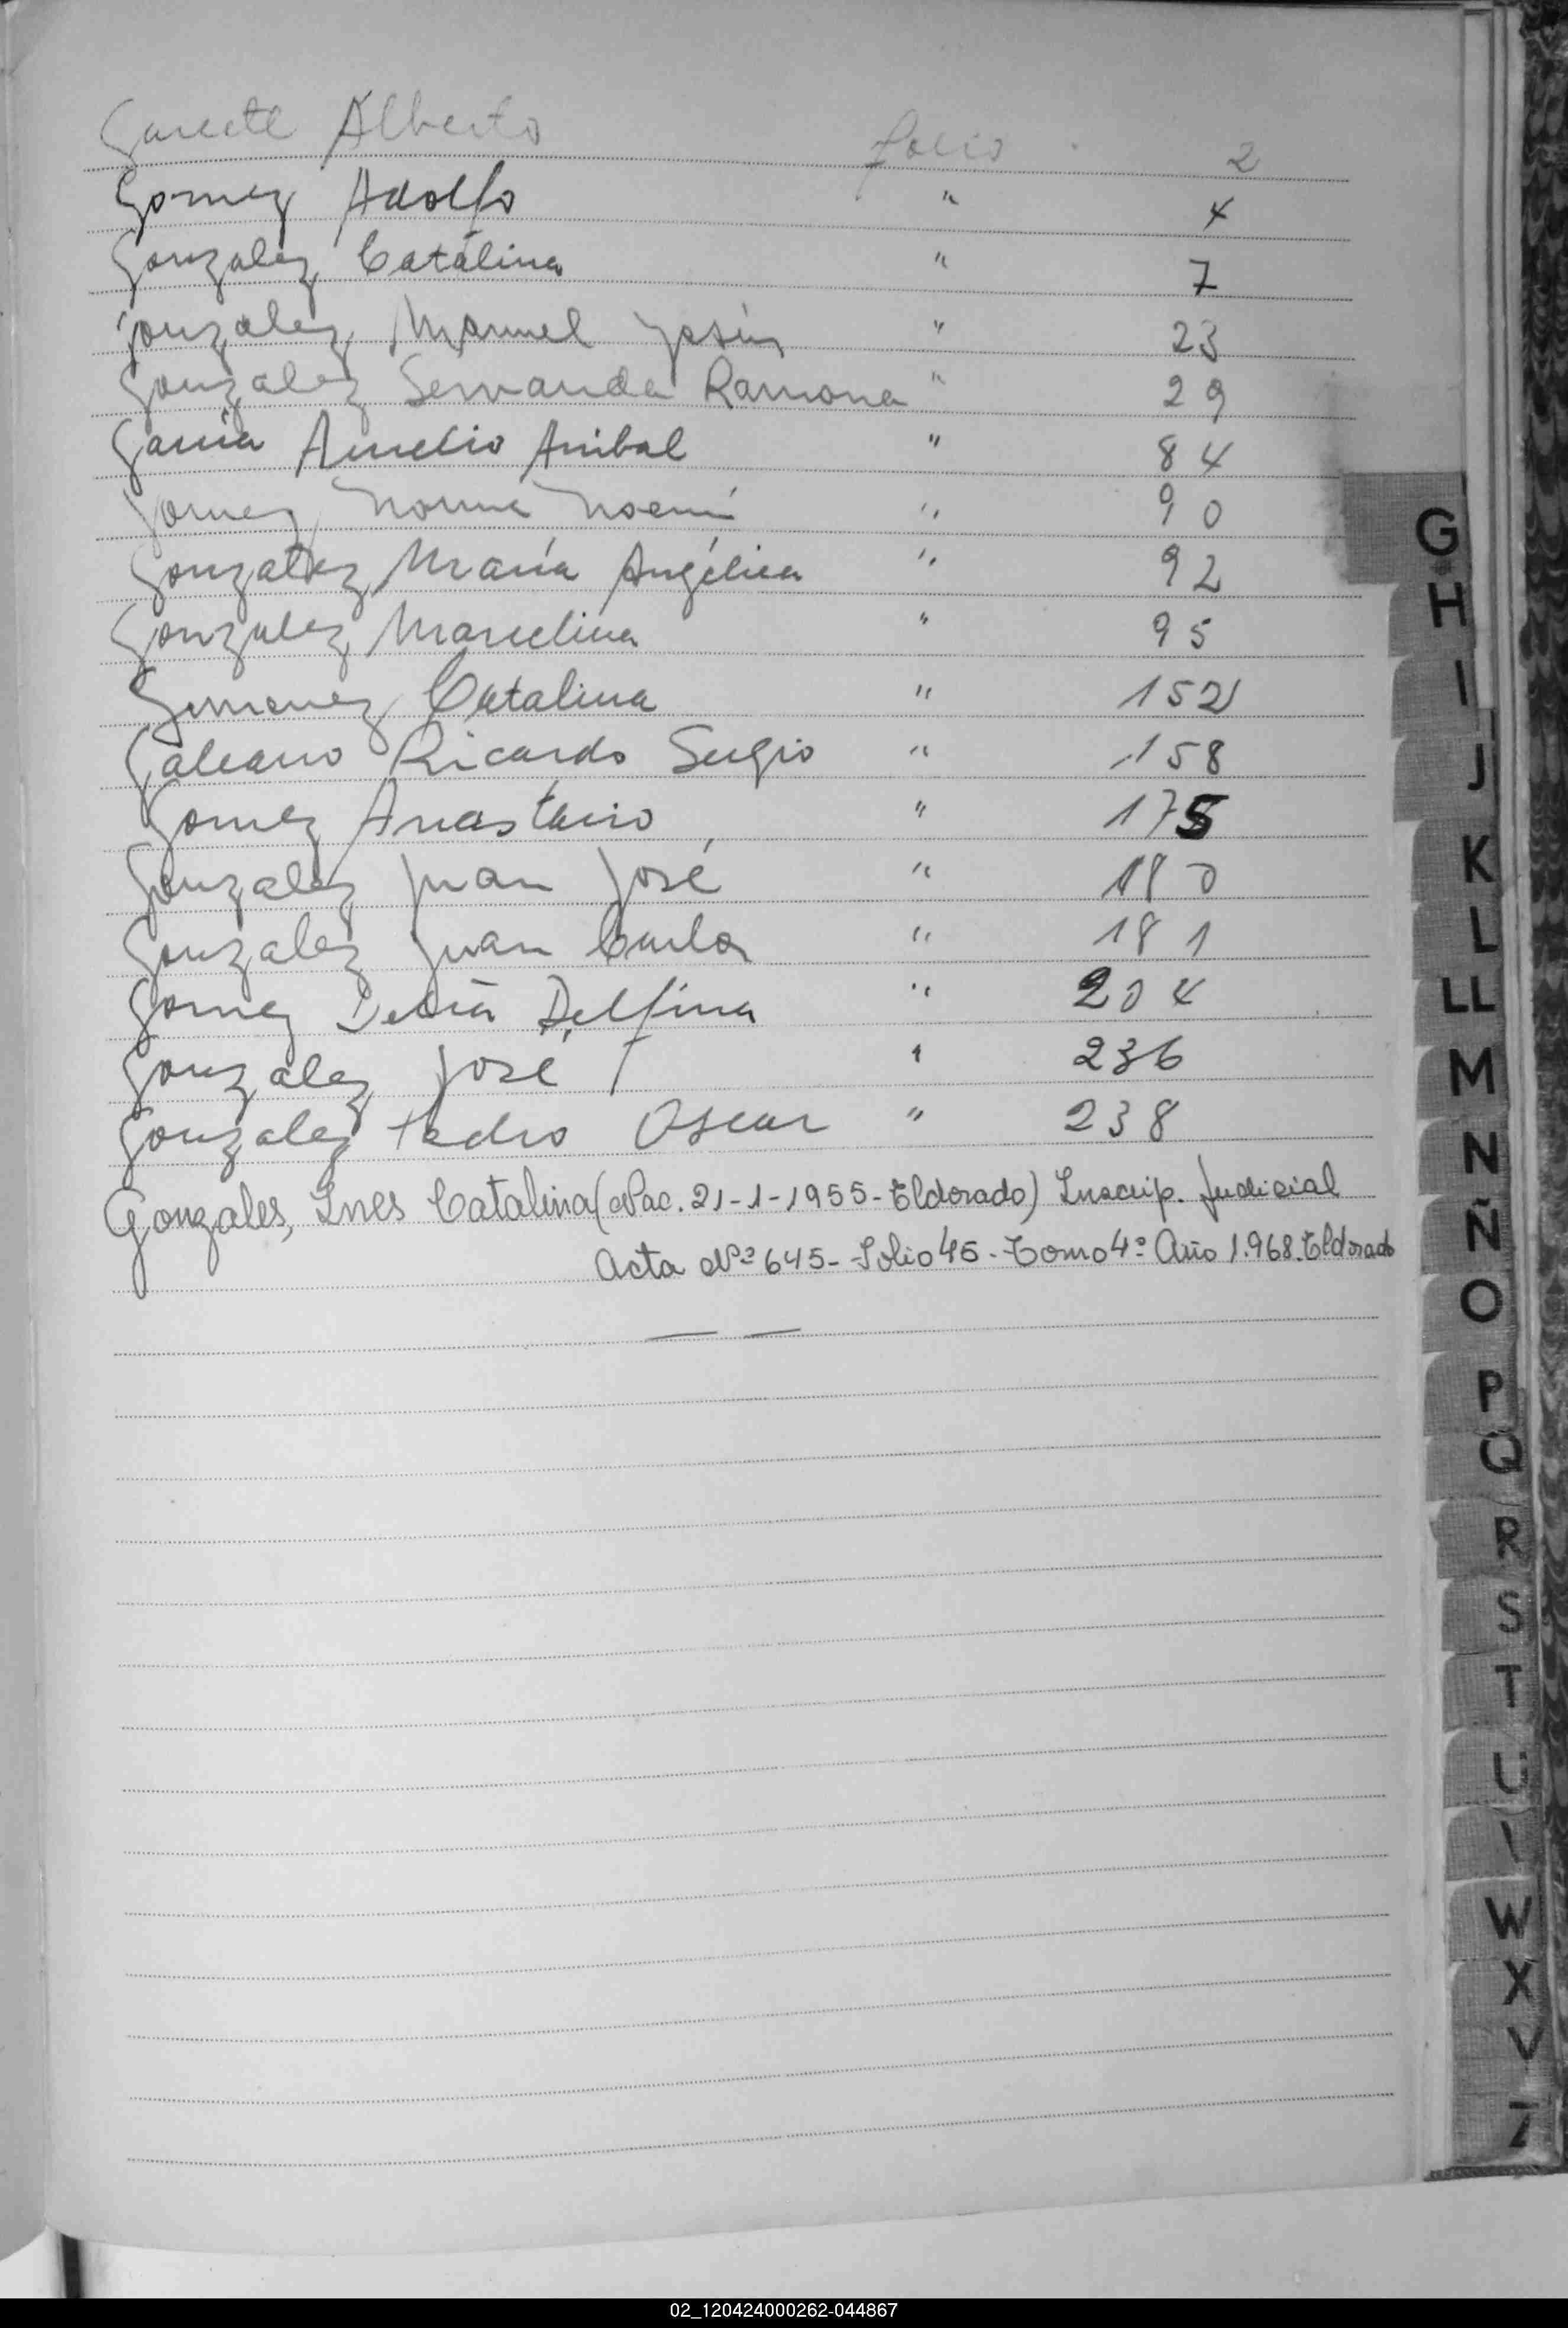 Garcete Alberto folio 2
Gomez Adolfo " 4
Gonzalez Catalina " 7
Gonzalez Manuel Jesús " 23
Gonzalez Servanda Ramona " 29
García Aurelio Anibal " 84
Gomez Norma Noemí " 90
Gonzalez María Angélica " 92
Gonzalez Marcelina " 95
Gimenez Catalina " 152
Galeano Ricardo Sergio " 158
Gomez Anastacio " 175
Gonzalez Juan José " 180
Gonzalez Juan Carlos " 181
Gomez Delia Delfina " 204
Gonzalez José F " 236
Gonzalez Pedro Oscar " 238
Gonzales, Ines Catalina (Nac. 21-1-1955-Eldorado) Inscrip. Judicial
Acta Nº 645- Folio 45- Tomo 4º Año 1.968. Eldorado
G
H
I
J
K
L
LL
M
N
Ñ
O
P
Q
R
S
T
U
W
X
Z
02_120424000262-044867